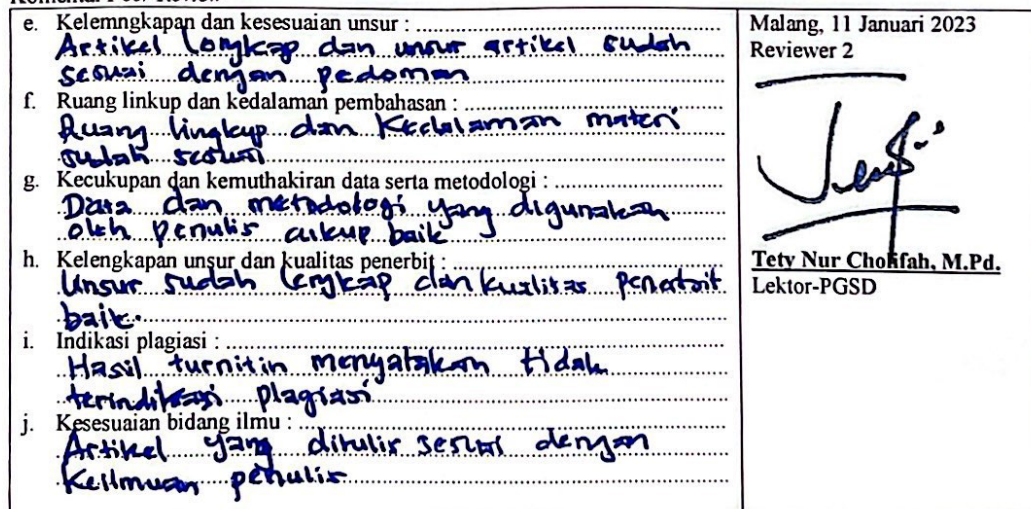 e. Kelemngkapan dan kesesuaian unsur :
Artikel lengkap dan unsur artikel sudah
sesuai dengan pedoman
f. Ruang linkup dan kedalaman pembahasan :
Ruang lingkup dan Kedalaman materi
sudah sesuai
g. Kecukupan dan kemuthakiran data serta metodologi :
Data dan metodologi yang digunakan
oleh penulis cukup baik
h. Kelengkapan unsur dan kualitas penerbit :
Unsur sudah lengkap dan kualitas penerbit
baik.
i. Indikasi plagiasi :
Hasil turnitin menyatakan tidak
terindikasi plagiasi
j. Kesesuaian bidang ilmu :
Artikel yang ditulis sesuai dengan
Keilmuan penulis
Malang, 11 Januari 2023
Reviewer 2
Tety Nur Cholifah, M.Pd.
Lektor-PGSD